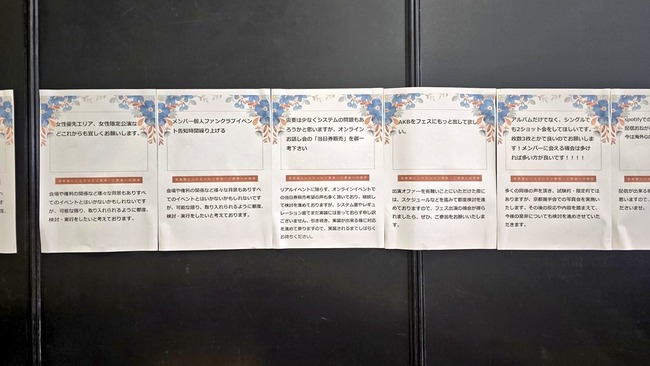 女性優先エリア、女性限定公演な
どこれからも宜しくお願いします。
会場や権利の関係など様々な背景もありすべ
てのイベントとはいかないかもしれないです
が、可能な限り、取り入れられるように都度、
検討・実行をしたいと考えております。
メンバー個人ファンクラブイベン
ト告知時間繰り上げる
会場や権利の関係など様々な背景もありすべ
てのイベントとはいかないかもしれないです
が、可能な限り、取り入れられるように都度、
検討・実行をしたいと考えております。
需要は少なくシステムの問題もあ
ろうかと思いますが、オンライン
お話し会の「当日券販売」を御一
考下さい
リアルイベントに限らず、オンラインイベントで
の当日券販売希望の声も多く頂いており、継続し
て検討を進めておりますが、システム面やレギュ
レーション面でまだ実装には至っておらず申し訳
ございません。引き続き、実装が出来る様に対応
を進めて参りますので、実装されるまでしばらく
お待ちください。
AKBをフェスにもっと出して欲し
い。
出演オファーを有難いことにいただけた際に
は、スケジュールなどを踏まえて都度検討を進
めておりますので、フェス出演の機会が得ら
れましたら、ぜひ、ご参加をお願いいたしま
す。
アルバムだけでなく、シングルで
も2ショット会をしてほしいです。
枚数3枚とかで良いのでお願いしま
す！メンバーに会える機会は多け
れば多い方が良いです！！！！
多くの同様の声を頂き、試験的・限定的では
ありますが、京都握手会での写真会を実施い
たします。その後の反応や内容を踏まえて、
今後の是非についても検討を進めさせていた
だきます。
potifyでの
配信おねが
今は海外心
配信が出来る様
思いますので、
ださいませ。